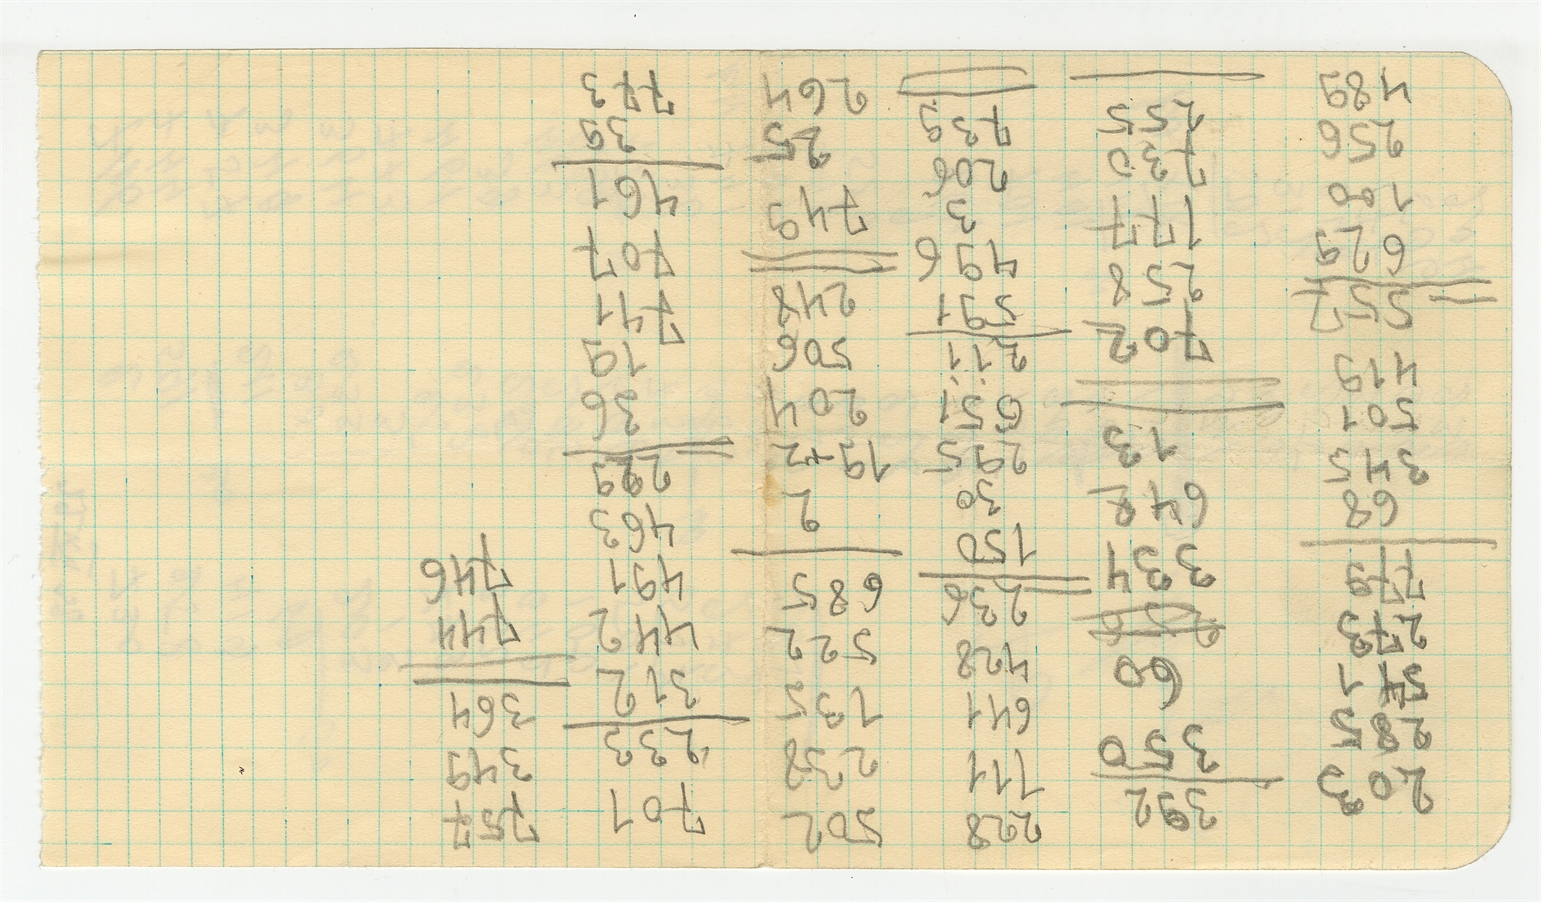 203
285
273
779
68
345
501
419
557
629
100
256
489
392
350
60
334
13
702
258
177
730
255
228
111
641
428
236
150
30
295
651
211
591
496
3
206
739
502
238
135
522
685
2
19+2
204
506
248
749
25
264
701
233
312
442
491
463
299
36
19
741
707
461
39
773
757
349
364
744
746